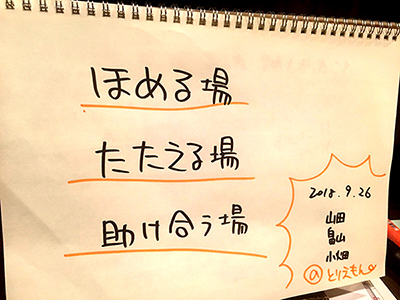 ほめる場
たたえる場
助け合う場
2018.9.26
山田
畠山
小畑
@とりえもん